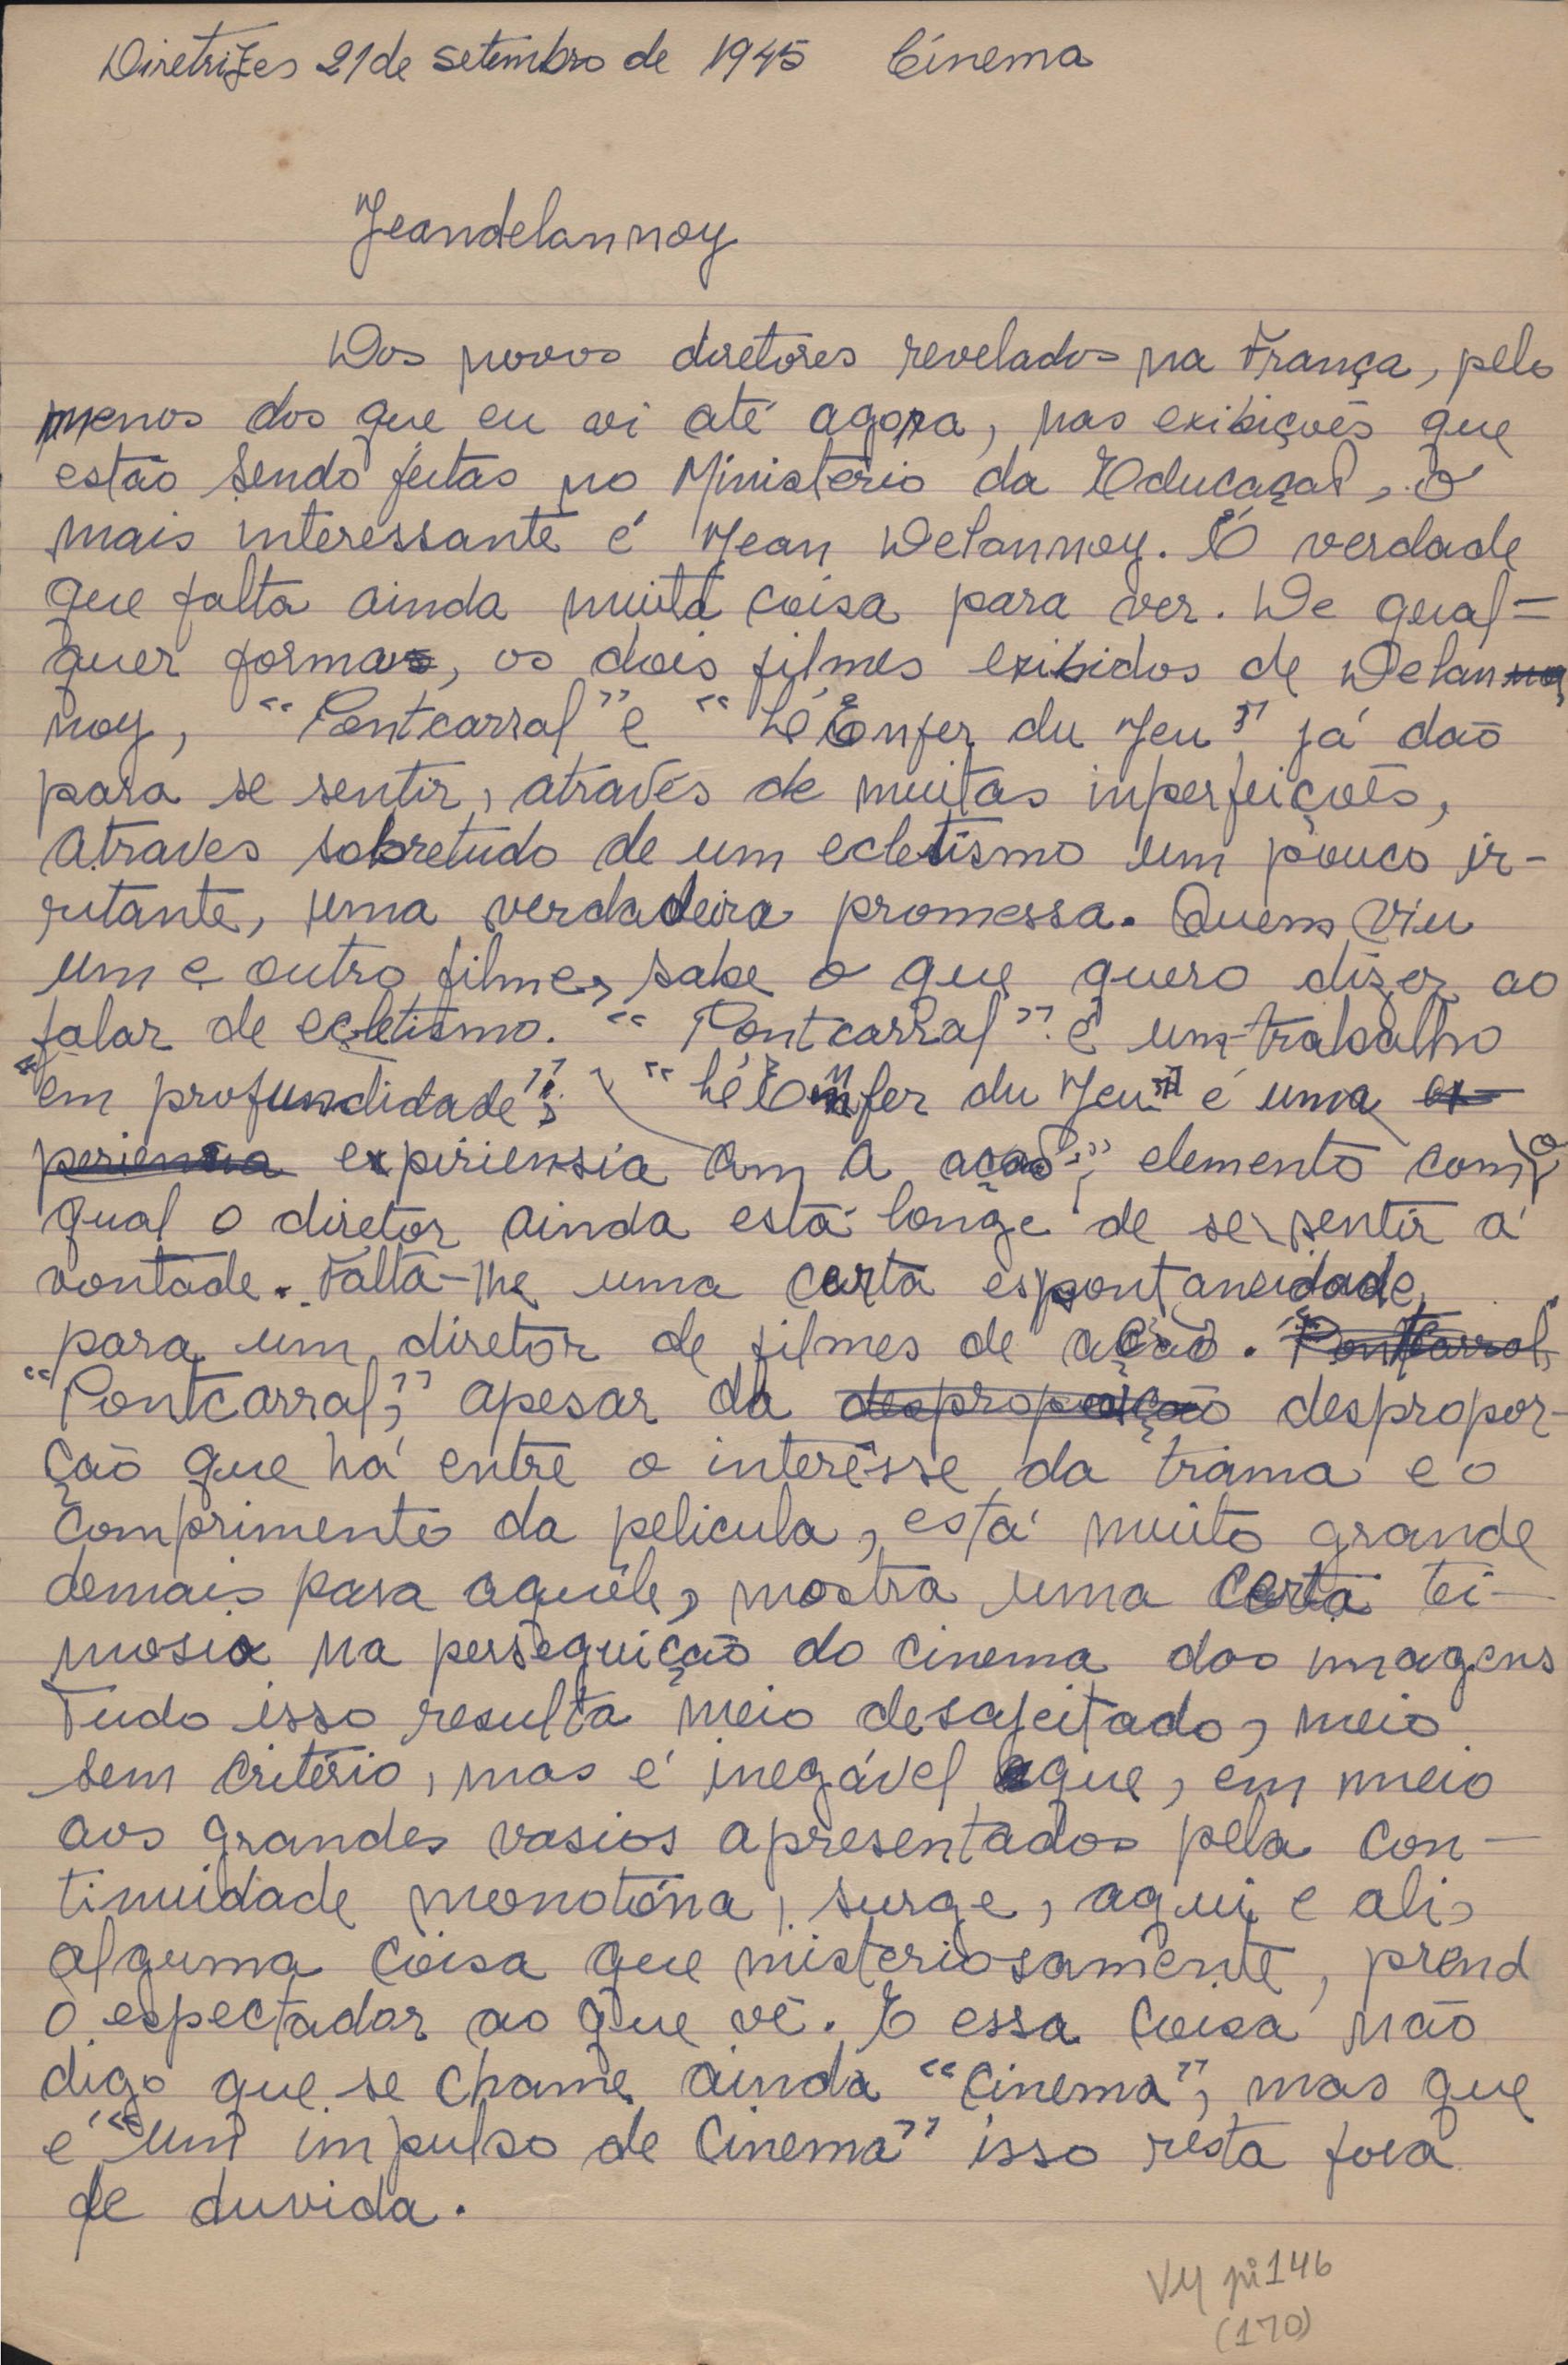 Diretrizes 21 de setembro de 1945 Cinema
Jeandelannoy
Dos novos diretores revelados na França, pelo
menos dos que eu vi até agora, nas exibiçoẽs que
estão sendo feitas no Ministério da Educaçaõ, o
mais interessante é Jean Delannoy. É verdade
que falta ainda muita coisa para ver. De qual=
quer forma, os dois filmes exibidos de Delan
noy, "Pontcarral" e "Lé Enfer du Jeu" já daõ
para se sentir, através de muitas inperfeiçoẽs,
atraves sobretudo de um ecletismo um pouco ir-
ritante, uma verdadeira promessa. Quem viu
um e outro filme, sabe o que quero dizer ao
falar de ecletismo. "Pontcarral" é um trabalho
"em profundidade"; "Lé Enfer du Jeu" é uma ex
periencia expiriensia om a açaõ", elemento com o
qual o diretor ainda está longe de se sentir á
vontade. Falta-lhe uma certa espontaneidade,
para um diretor de filmes de ação. "Pontcarral,"
"Pontcarral," apesar da desproporção despropor-
çaõ que há entre o interêsse da trama e o
comprimento da pelicula, está muito grande
demais para aquéle, mostra uma certa tei-
mosia na perseguição do cinema das imagens
Tudo isso resulta meio desajeitado, meio
sem critério, mas é inegável que, em meio
aos grandes vasios apresentados pela con-
tinuidade monotóna, surge, aqui e ali,
alguma coisa que misteriosamente, prend
o espectador ao que vê. E essa coisa não
digo que se chame ainda "cinema", mas que
é "um impulso de cinema" isso resta fora
de duvida.
VM pi 146
(170)